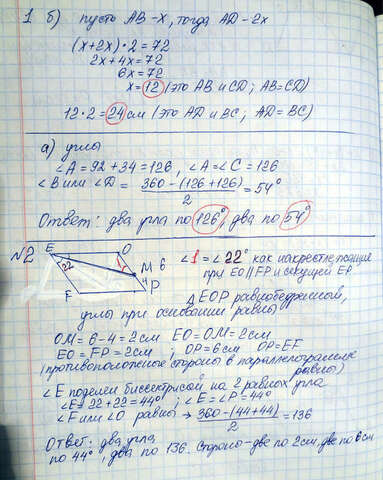 1 б) пусть АВ-х, тогда AD-2х
(х+2х)·2=72
2х+4х=72
6х=72
х=12 (это АВ и CD; AB=CD)
12·2=24см (это AD и BC; AD=BC)
а) углы
∠A=92+34=126, ∠A=∠C=126
∠B или ∠D= 360-(126+126)/2 =54°
Ответ: два угла по 126°, два по 54°
№2 E O ∠1=∠22° как накрест лежащие
22 M 6 при EO||FP и секущей EP
F 4 P △EOP равнобедренный,
углы при основании равны
OM=6-4=2см EO=OM=2см
EO=FP=2см; OP=6см OP=EF
(противоположные стороны в параллелограмме
равны)
∠E поделен биссектрисой на 2 равных угла
∠E=22+22=44°; ∠E=∠P=44°
∠F или ∠O равны → 360-(44+44)/2 =136
Ответ: два угла
по 44°, два по 136. Стороны-две по 2см, две по 6см